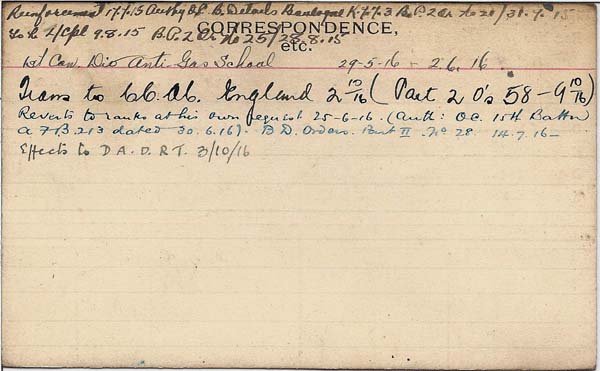 Reinforcement 17.7.15 Authy Of. B. Details Boulogne K.77.3 B.P.2 Or No 20/31.7.15
To be L/Cpl 9.8.15 B.P.2 Or No 25/28.8.15
CORRESPONDENCE,
etc.
1st Can. Div Anti-Gas School 29-5-16 - 2.6.16.
Trans to C.C.A.C. England 2 10/16 (Part 2 O's 58 - 9 10/16)
Reverts to ranks at his own request 25-6-16. (Auth: O.C. 15th Battn
a 7 B.213 dated 30.6.16). B.D. Orders. Part II. No 28. 14.7.16-
Effects to D.A.D.R.T. 3/10/16